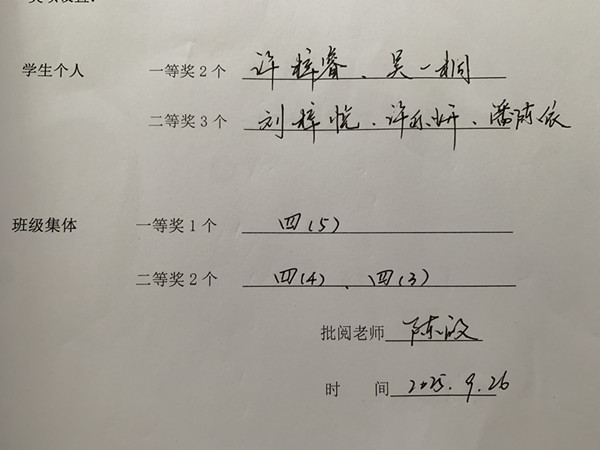 奖项设置:
学生个人 一等奖2个 许梓睿、吴一桐
二等奖3个 刘梓悦、许乐妍、潘陈依
班级集体 一等奖1个 四(5)
二等奖2个 四(4)、四(3)
批阅老师 陈
时 间 2025.9.26